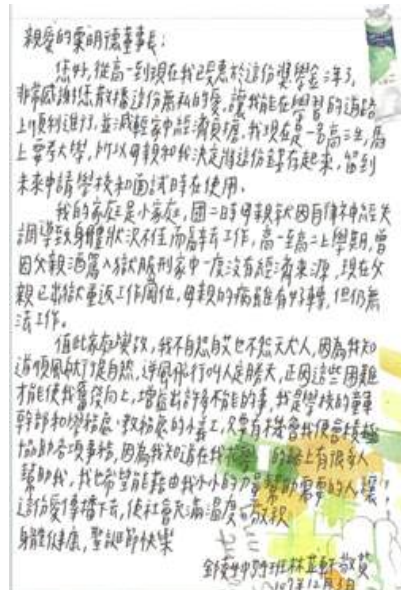 親愛的粟明德董事長：
您好，從高一到現在我已受惠於這份獎學金三年了，
非常感謝您散播這份無私的愛，讓我能在學習的道路
上順利進行，並減輕家中經濟負擔，我現在是一名高三生，馬
上要考大學，所以母親和我決定將這份錢存起來，留到
未來申請學校和面試時在使用。
我的家庭是小家庭，國二時母親就因自律神經失
調導致身體狀況不佳而辭去工作，高一至高二上學期，曾
因父親酒駕入獄服刑家中一度沒有經濟來源，現在父
親已出獄重返工作崗位，母親的病雖有好轉，但仍無
法工作。
值此家庭變故，我不自怨自艾也不怨天尤人，因為我知
道順風航行是自然，逆風飛行叫人定勝天，正因這些困難
才能使我奮發向上，增益出許多不能的事，我是學校的童軍
幹部和學務處、教務處的小義工，只要有機會我便會積極
協助各項事務，因為我知道在我 的路上有很多人
幫助我，我也希望能藉由我小小的力量幫助需要的人，讓
這份愛傳播下去，使社會充滿溫度。敬祝
身體健康，聖誕節快樂
班林 軒敬贊
107年12月3日